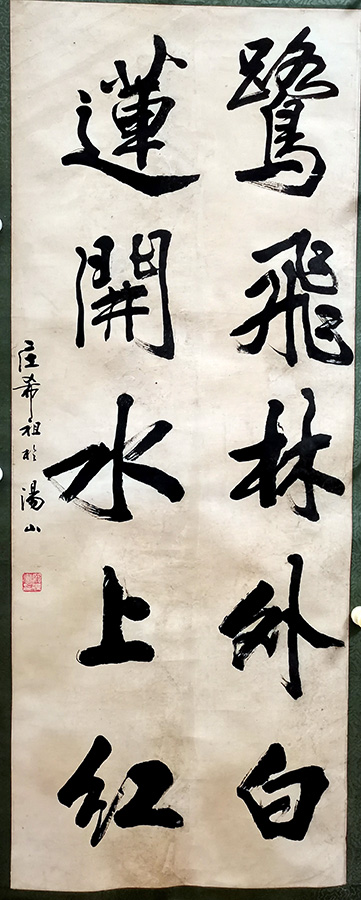 鷺飛林外白
蓮開水上紅
庄希祖於湯山